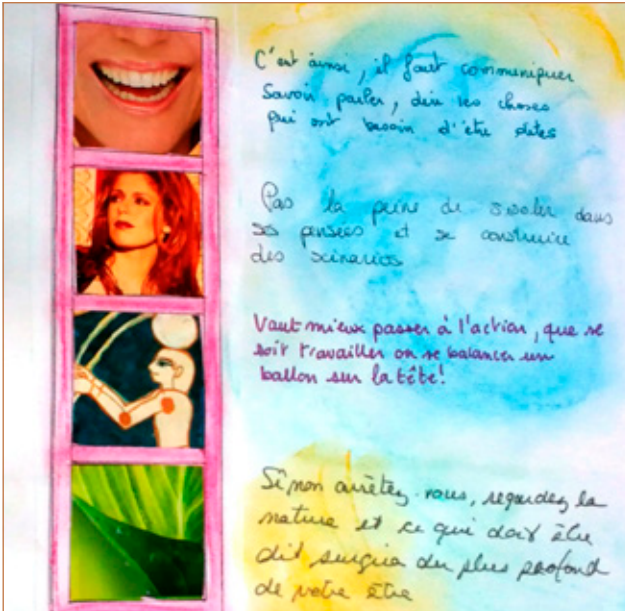 C'est ainsi, il faut communiquer
Savoir parler, dire les choses
qui ont besoin d'être dites
Pas la peine de s'isoler dans
ses pensées et se construire
des scénarios
Vaut mieux passer à l'action, que se
soit travailler ou se balancer un
ballon sur la tête!
Sinon arrêtez-vous, regardez la
nature et ce qui doit être
dit surgira du plus profond
de votre être